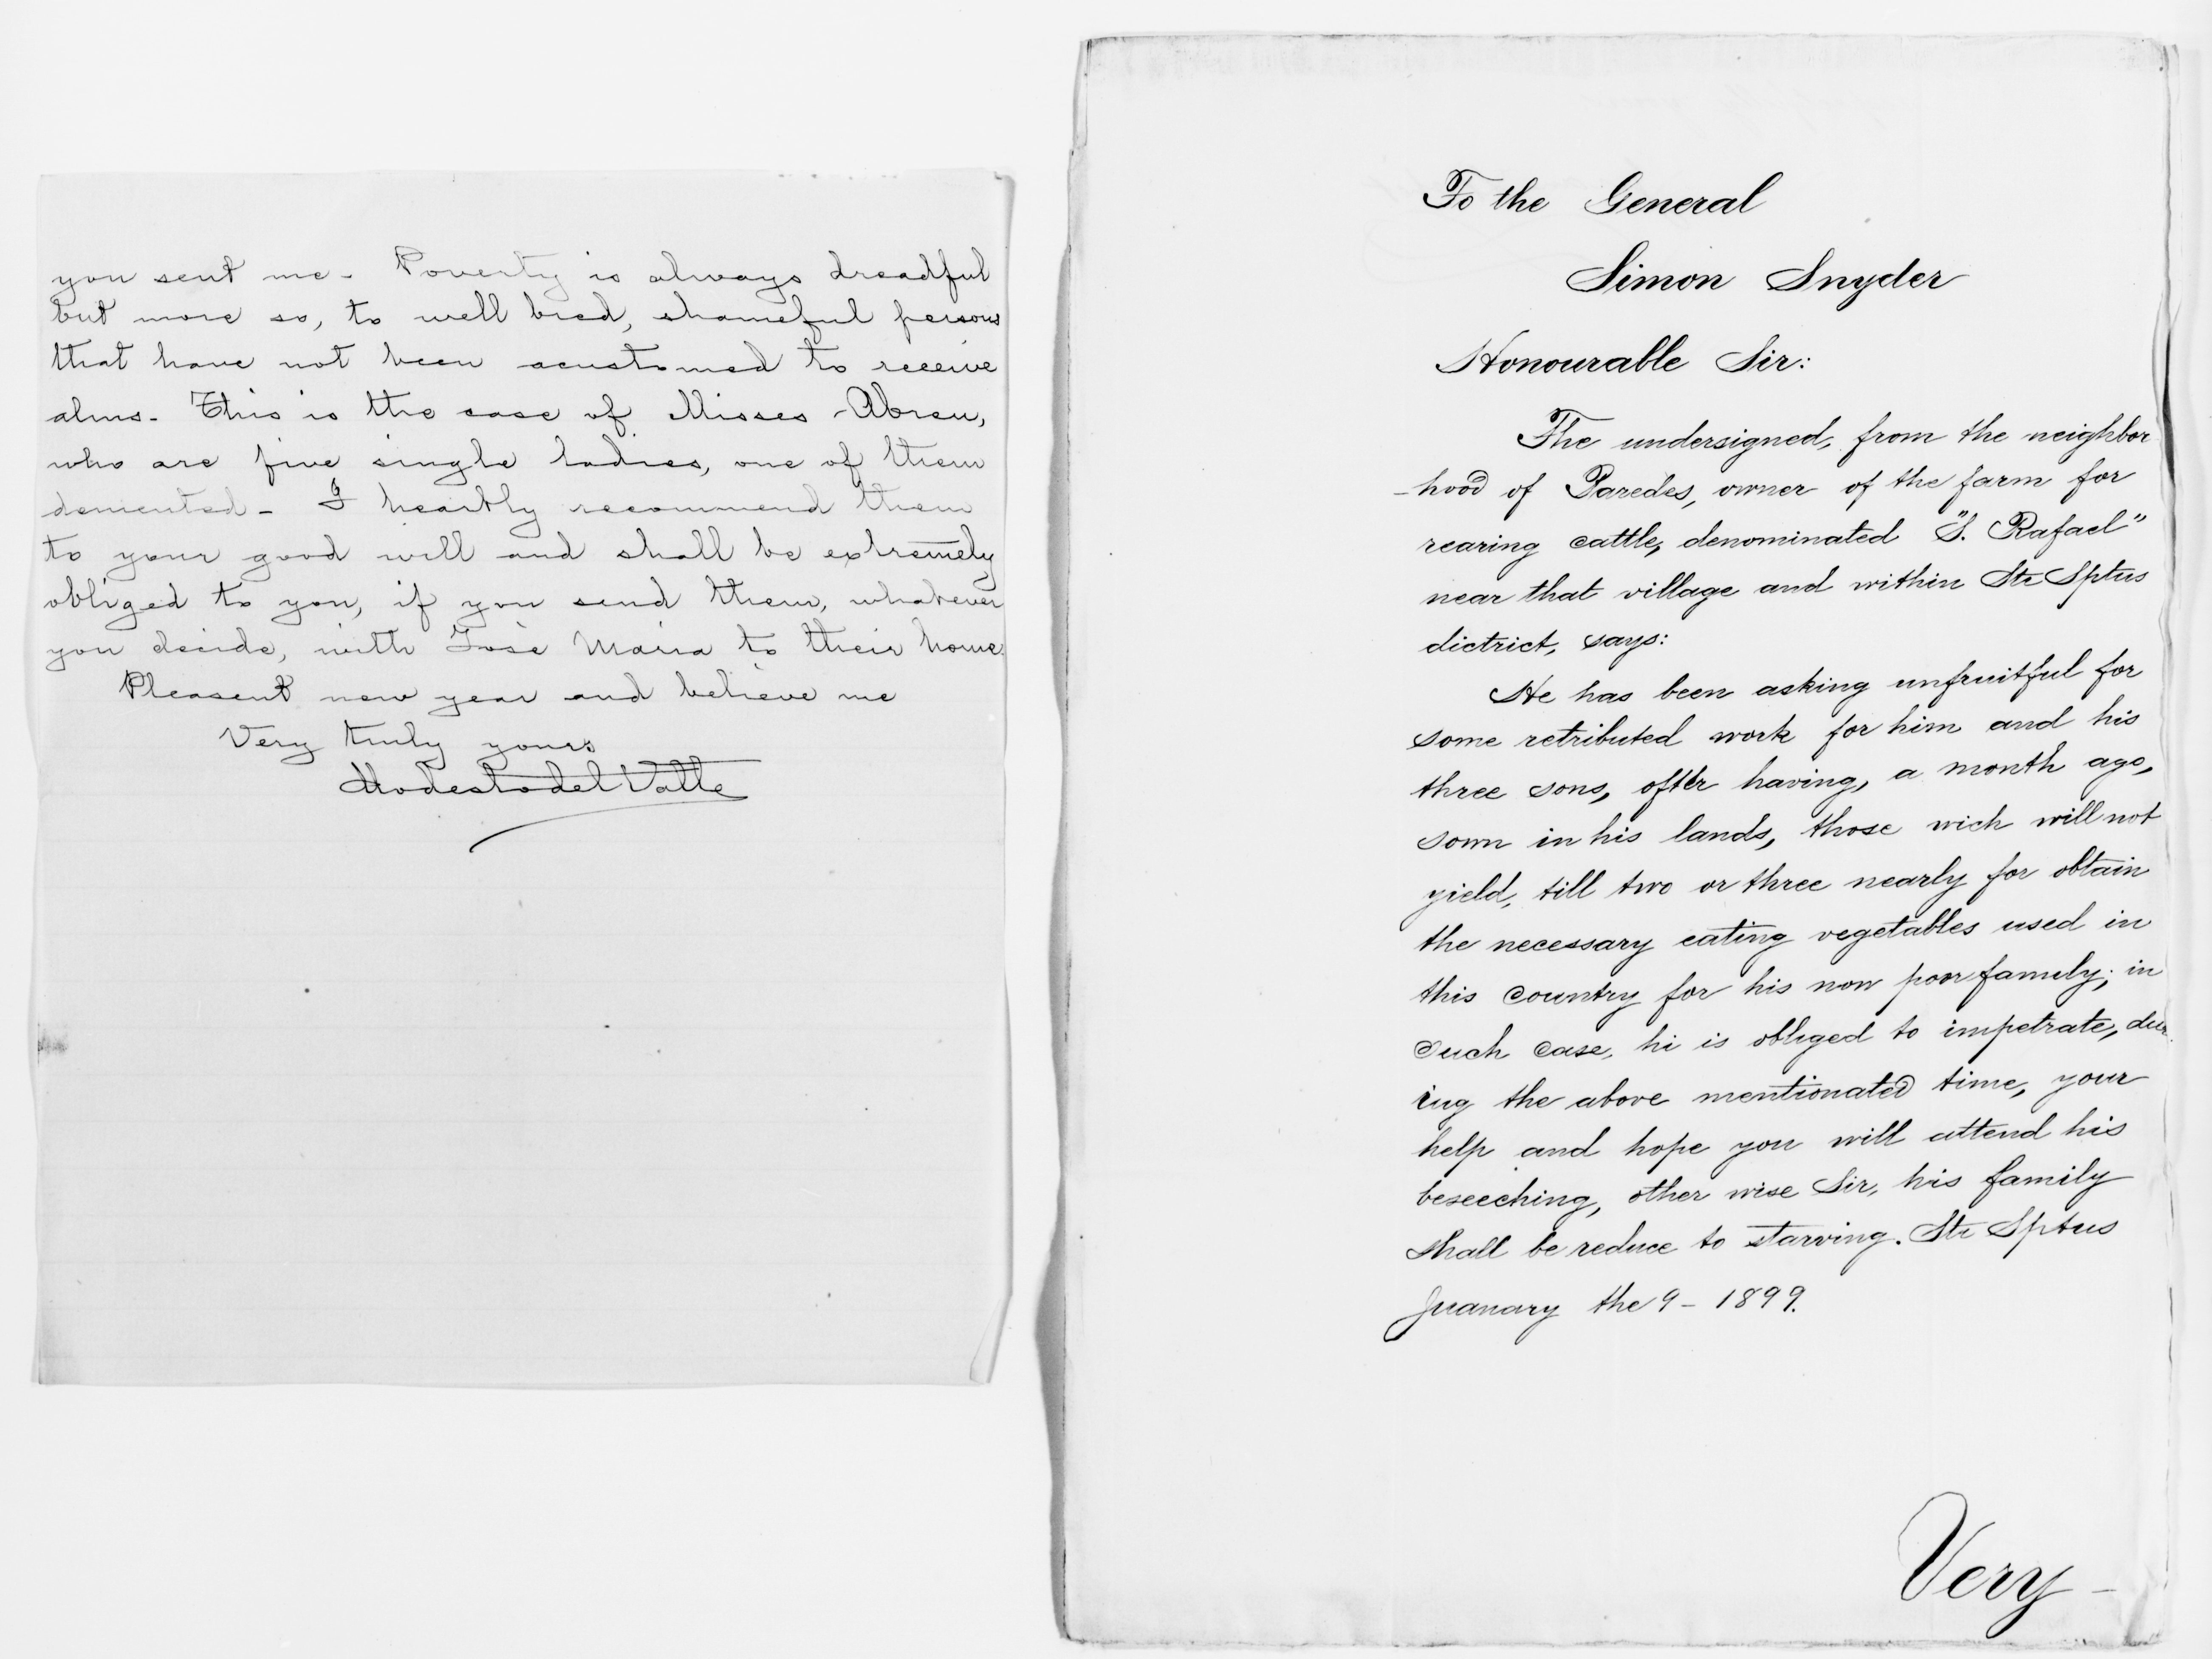 you sent me - Poverty is always dreadful
but more so, to well bred, shameful persons
that have not been acustomed to receive
alms - This is the case of Misses Abreu,
who are five single ladies, one of them
demented - I heartly recommend them
to your good will and shall be extremely
obliged to you, if you send them, whatever
you decide, with José Maria to their home.
Pleasent new year and believe me
Very truly yours
Modesto del Valle
To the General
Simon Snyder
Honourable Sir:
The undersigned, from the neighbor
-hood of Paredes, owner of the farm for
rearing cattle, denominated "S. Rafael"
near that village and within Sti Sptus
dictrict, says:
He has been asking unfruitful for
some retributed work for him and his
three sons, ofter having, a month ago,
sown in his lands, those wich will not
yield, till two or three nearly for obtain
the necessary eating vegetables used in
this country for his now poor family; in
such case, hi is obliged to impetrate, dur
ing the above mentionated time, your
help and hope you will attend his
beseeching, other wise Sir, his family
shall be reduce to starving. Sti Sptus
Juanary the 9 - 1899.
Very -